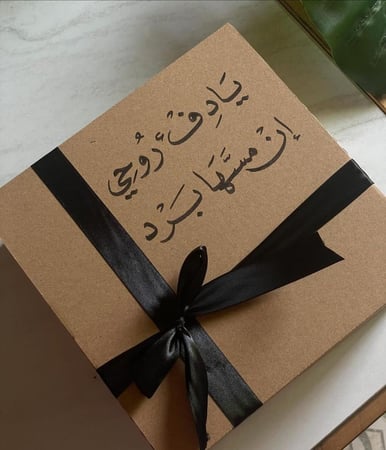 يَا دِفْءُ رُوُحِي
إنْ مسَّهَا بَرْد